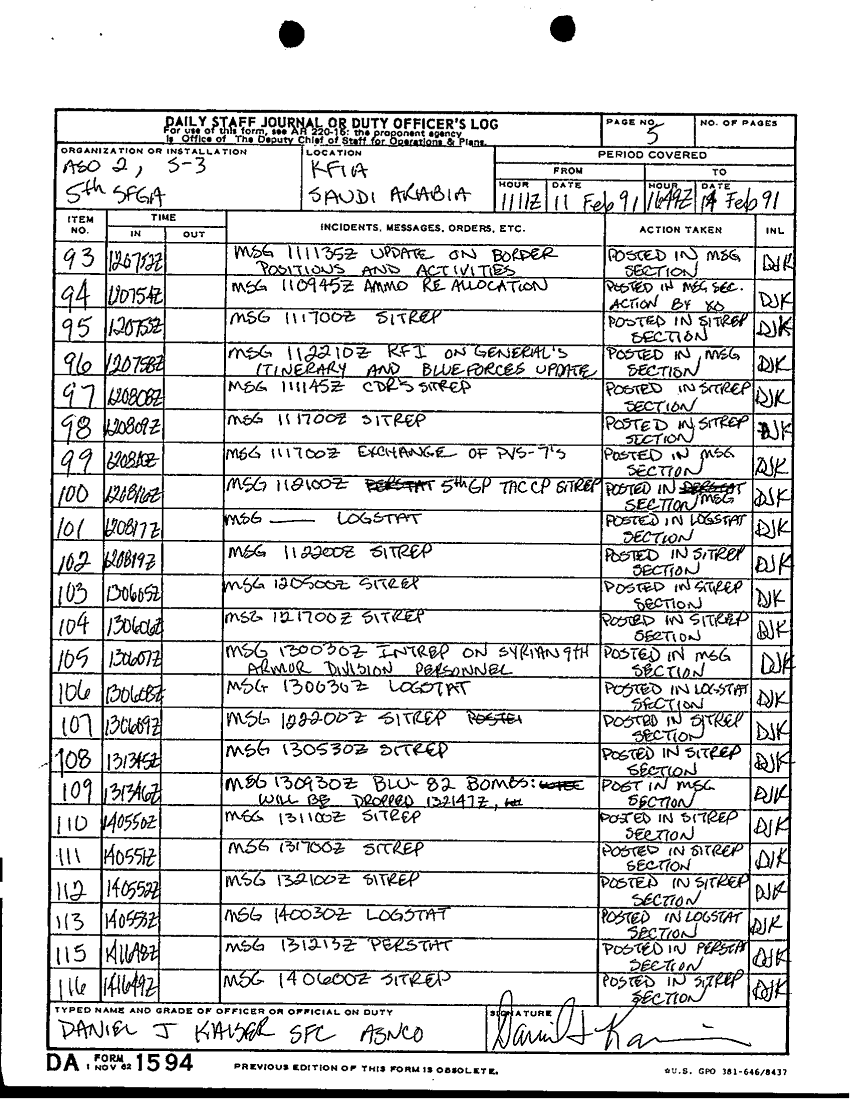 DAILY STAFF JOURNAL OR DUTY OFFICER'S LOG
For use of this form, see AR 220-15: the proponent agency
is Office of The Deputy Chief of Staff for Operations & Plans.
PAGE NO.
5
NO. OF PAGES
ORGANIZATION OR INSTALLATION
ASO 2, S-3
5th SFGA
LOCATION
KFIA
SAUDI ARABIA
PERIOD COVERED
FROM
TO
HOUR
1111Z
DATE
11 Feb 91
HOUR
1649Z
DATE
14 Feb 91
ITEM NO.
TIME
IN
OUT
INCIDENTS, MESSAGES, ORDERS, ETC.
ACTION TAKEN
INL
93 120752Z MSG 111135Z UPDATE ON BORDER POSTED IN MSG DJK
POSITIONS AND ACTIVITIES SECTION
94 120754Z MSG 110945Z AMMO RE ALLOCATION POSTED IN MSG SEC. DJK
ACTION BY XO
95 120755Z MSG 111700Z SITREP POSTED IN SITREP DJK
SECTION
96 120758Z MSG 112210Z RFI ON GENERAL'S POSTED IN MSG DJK
ITINERARY AND BLUEFORCES UPDATE SECTION
97 120808Z MSG 111145Z CDR'S SITREP POSTED IN SITREP DJK
SECTION
98 120809Z MSG 111700Z SITREP POSTED IN SITREP DJK
SECTION
99 120810Z MSG 111700Z EXCHANGE OF PVS-7'S POSTED IN MSG DJK
SECTION
100 120816Z MSG 112100Z PERSTAT 5th GP TACCP SITREP POSTED IN PERSTAT DJK
SECTION MSG
101 120817Z MSG —— LOGSTAT POSTED IN LOGSTAT DJK
SECTION
102 120819Z MSG 112200Z SITREP POSTED IN SITREP DJK
SECTION
103 130605Z MSG 120500Z SITREP POSTED IN SITREP DJK
SECTION
104 130606Z MSG 121700Z SITREP POSTED IN SITREP DJK
SECTION
105 130607Z MSG 130030Z INTREP ON SYRIAN 9TH POSTED IN MSG DJK
ARMOR DIVISION PERSONNEL SECTION
106 130608Z MSG 130030Z LOGSTAT POSTED IN LOGSTAT DJK
SECTION
107 130609Z MSG 122200Z SITREP POSTED IN SITREP DJK
SECTION
108 131345Z MSG 130530Z SITREP POSTED IN SITREP DJK
SECTION
109 131346Z MSG 130930Z BLU-82 BOMBS: POST IN MSG DJK
WILL BE DROPPED 132147Z, SECTION
110 140550Z MSG 131100Z SITREP POSTED IN SITREP DJK
SECTION
111 140551Z MSG 131700Z SITREP POSTED IN SITREP DJK
SECTION
112 140552Z MSG 132100Z SITREP POSTED IN SITREP DJK
SECTION
113 140553Z MSG 140030Z LOGSTAT POSTED IN LOGSTAT DJK
SECTION
115 141648Z MSG 131213Z PERSTAT POSTED IN PERSTAT DJK
SECTION
116 141649Z MSG 140600Z SITREP POSTED IN SITREP DJK
SECTION
TYPED NAME AND GRADE OF OFFICER OR OFFICIAL ON DUTY
DANIEL J KAISER SFC A3NCO
SIGNATURE
DA FORM 1594
1 NOV 62
PREVIOUS EDITION OF THIS FORM IS OBSOLETE.
☆U.S. GPO 381-646/8437